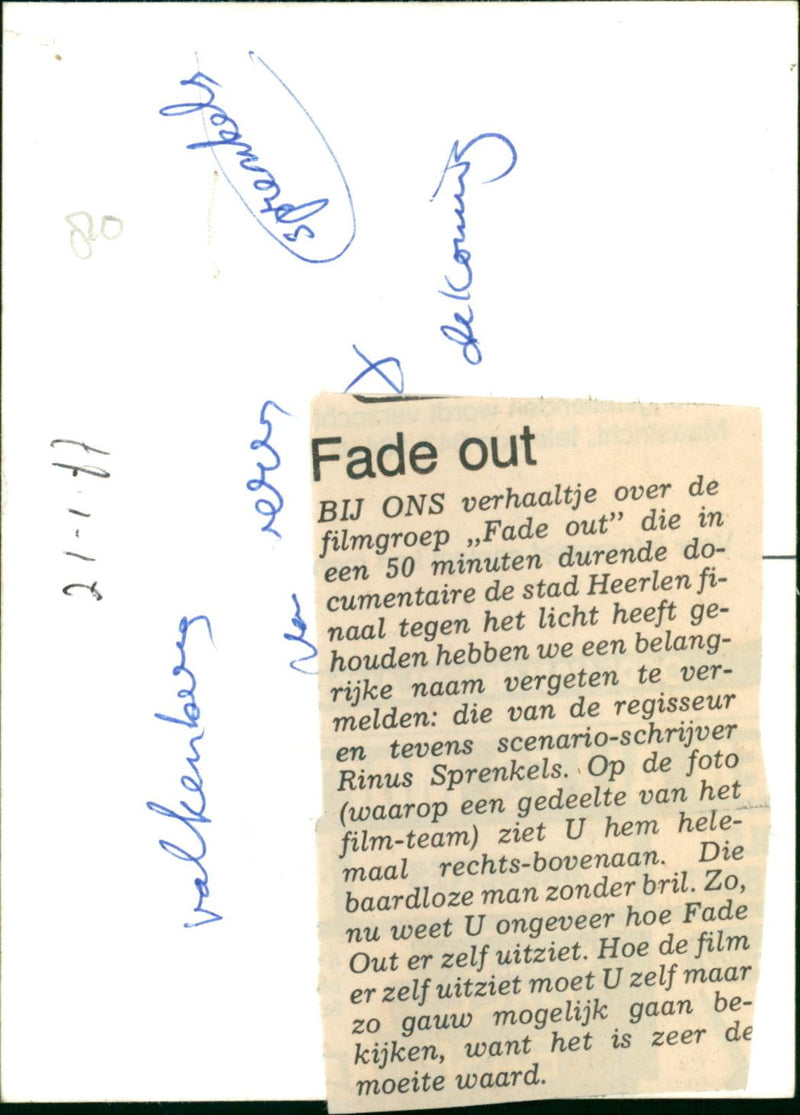 sprenkels
de Koning
80
21-1-87
valkenberg
Fade out
BIJ ONS verhaaltje over de
filmgroep „Fade out” die in
een 50 minuten durende do-
cumentaire de stad Heerlen fi-
naal tegen het licht heeft ge-
houden hebben we een belang-
rijke naam vergeten te ver-
melden: die van de regisseur
en tevens scenario-schrijver
Rinus Sprenkels. Op de foto
(waarop een gedeelte van het
film-team) ziet U hem hele-
maal rechts-bovenaan. Die
baardloze man zonder bril. Zo,
nu weet U ongeveer hoe Fade
Out er zelf uitziet. Hoe de film
er zelf uitziet moet U zelf maar
zo gauw mogelijk gaan be-
kijken, want het is zeer de
moeite waard.